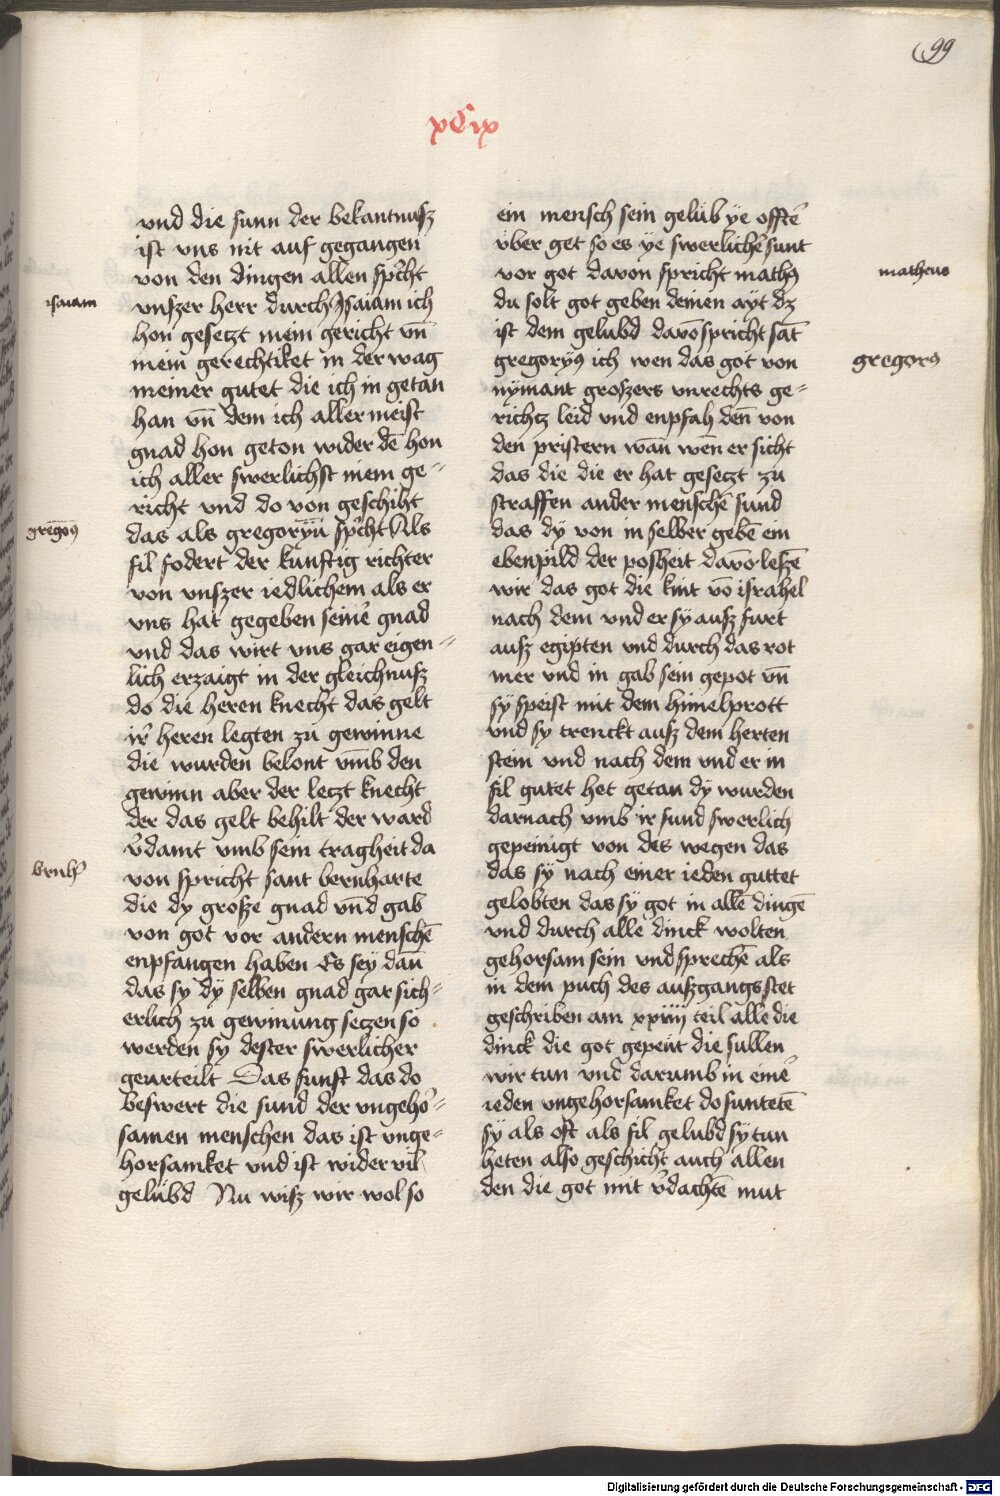 99
xCix
vnd die sunn der bekantnusz
ist vns nit auf gegangen
von den dingen allen sp̄cht
isaiam
vnszer herr durch Jsaiam ich
hon gesetzt mein gericht vn̄
mein gerechtiket in der wag
meiner gutet die ich in getan
han vn̄ dem ich aller meist
gnad hon geton wider dē hon
ich aller swerlichst mein ge⸗
richt vnd do von geschiht
gregoꝰ
das als gregoryu sp̄cht Als
fil fodert der kunftig richter
von vnszer iedlichem als er
vns hat gegeben seinē gnad
vnd das wirt vns gar eigen⸗
lich erzaigt in der gleichnusz
do die heren knecht das gelt
ir̄ heren legten zu gewinne
die wurden belont vm̄b den
gewinn aber der letzt knecht
der das gelt behilt der ward
v̄damt vmb sein tragheit da
von spricht sant bernharte
die dy grosze gnad vn̄d gab
von got vor andern menschē
enpfangen haben Es sey dan̄
das sy dÿ selben gnad gar sich⸗
erlich zu gewinung setzen so
werden sy dester swerlicher
geurteilt Das funft das do
beswert die sund der vngehō⸗
samen menschen das ist vnge⸗
horsamket vnd ist wider vil
gelübd Nu wisz wir wol so
ein mensch sein gelüb ÿe offtē
vber get so es ÿe swerlichē sunt
vor got davon spricht mathꝰ
matheus
du solt got geben deinen aÿt dz
ist dem gelubd davō spricht sāt
gregorꝰ
gregorÿꝰ ich wen das got von
nÿmant groszers vnrechts ge⸗
richtz leid vnd enpfah den̄ von
den pristern wan̄ wen̄ er sicht
das die die er hat gesetzt zu
straffen ander menschē sund
das dÿ von in selber gebē ein
ebenpild der posheit davō leszē
wir das got die kint vō israhel
nach dem vnd er sÿ ausz furt
ausz egipten vnd durch das rot
mer vnd in gab sein gepot vn̄
sÿ speist mit dem himelprott
vnd sy trenckt ausz dem herten
stein vnd nach dem vnd er in
fil gutet het getan dÿ wurden
darnach vmb ir sund swerlich
gepeinigt von des wegen das
das sÿ nach einer ieden guttet
gelobten das sy got in allē dingē
vnd durch alle dinck wolten
gehorsam sein vnd sprechē als
in dem puch des auszgangs stet
geschriben am xxiiij teil alle die
dinck die got gepeut die sullen
wir tun vnd darumb in einē
ieden vngehorsamket do suntetē
sÿ als oft als fil gelubd sy tun
heten also geschicht auch allen
den die got mit v̄dachtē mut